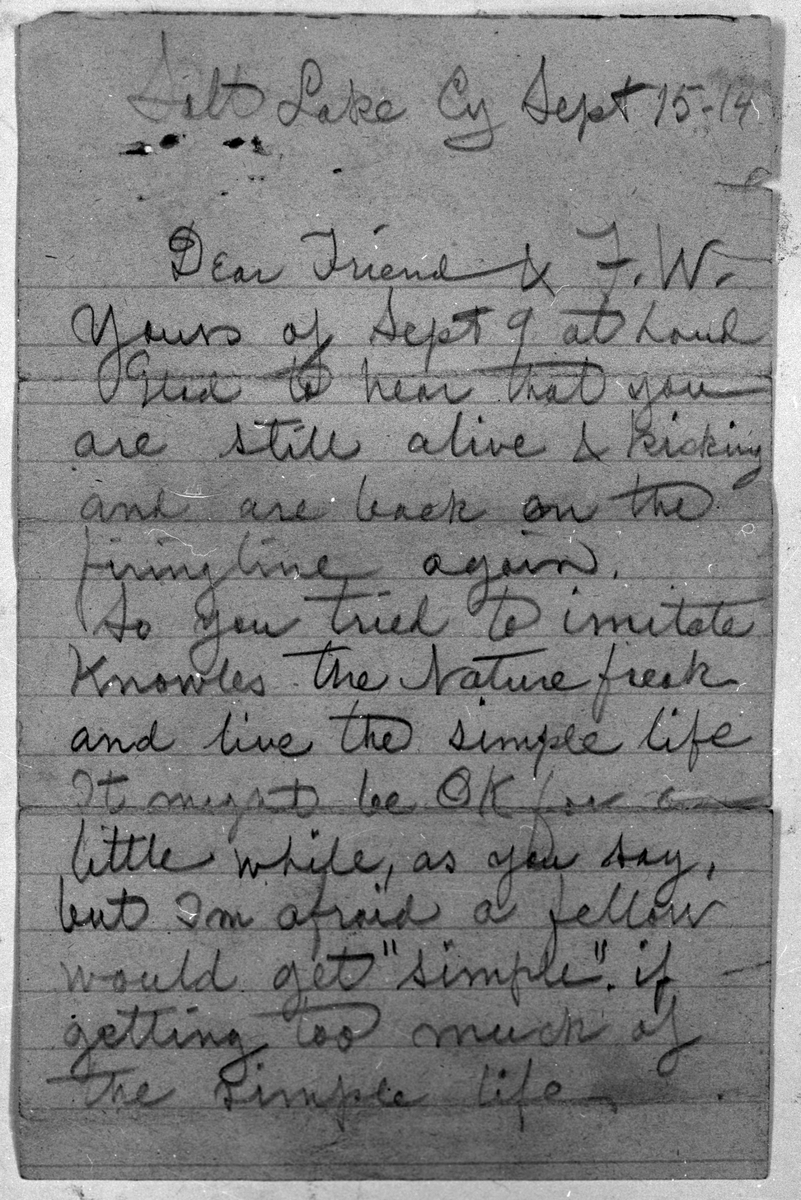 Salt Lake Cy Sept 15-14
Dear Friend & F. W.
Yours of Sept 9 at hand
Glad to hear that you
are still alive & kicking
and are back on the
firing line again.
So you tried to imitate
Knowles the Nature freak
and live the simple life
It might be OK for a
little while, as you say,
but Im afraid a fellow
would get "simple". if
getting too much of
the simple life.